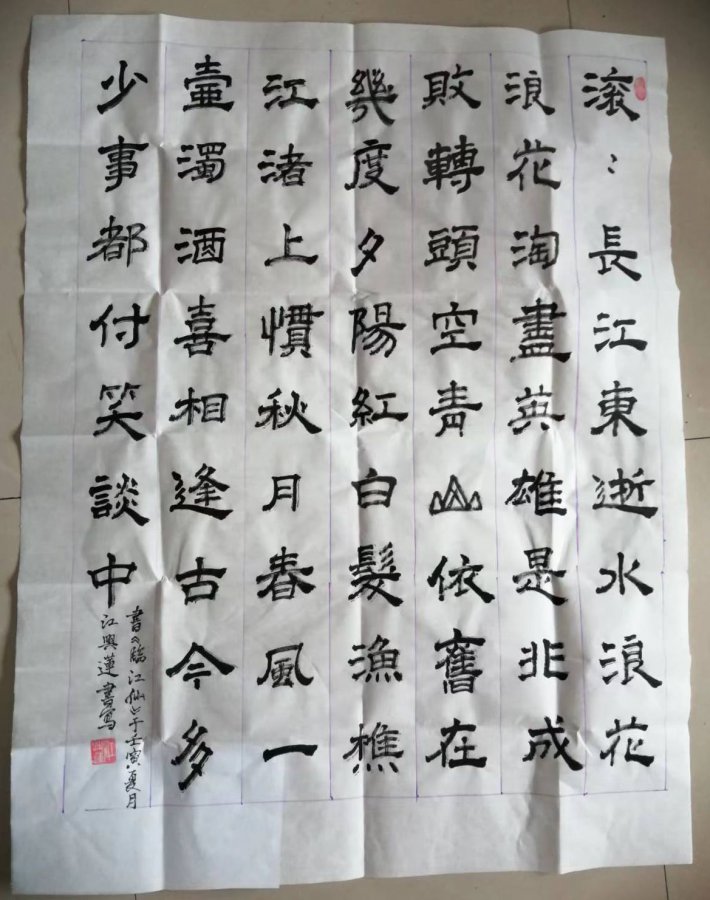 滚〻長江東逝水浪花
浪花淘盡英雄是非成
敗轉頭空青山依舊在
幾度夕陽紅白髮漁樵
江渚上慣秋月春風一
壺濁酒喜相逢古今多
少事都付笑談中
書《臨江仙》于壬寅夏月
江興蓮書寫